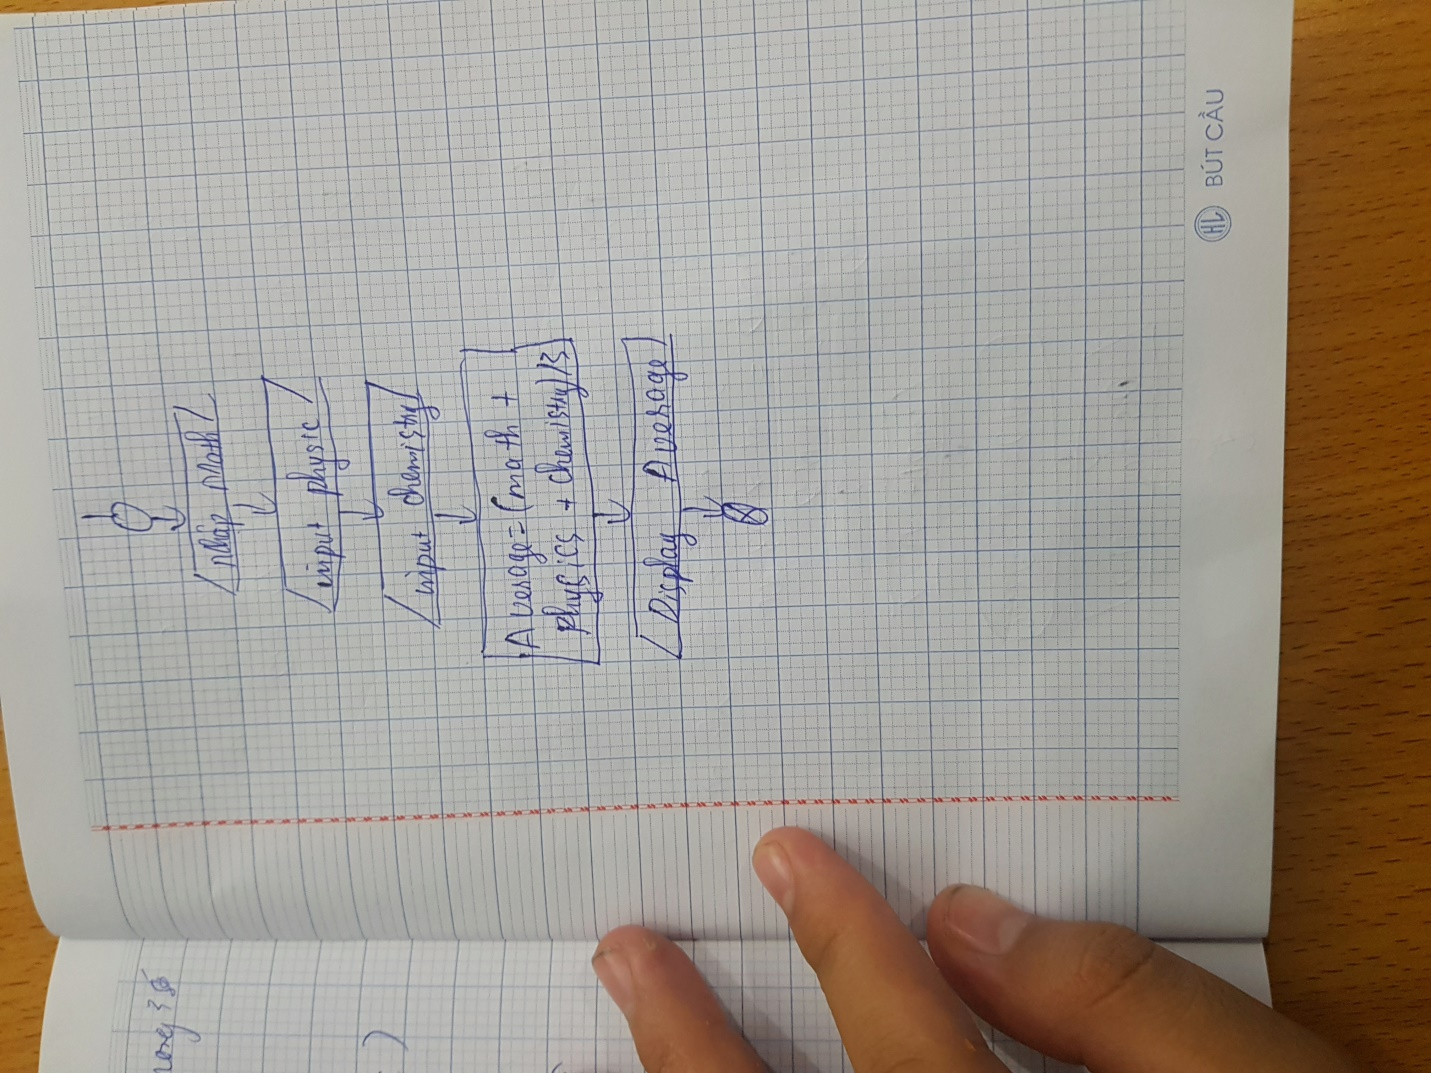 nhập math
input physic
input chemistry
Average = (math +
physics + chemistry)/3
Display Average
HL BÚT CẦU